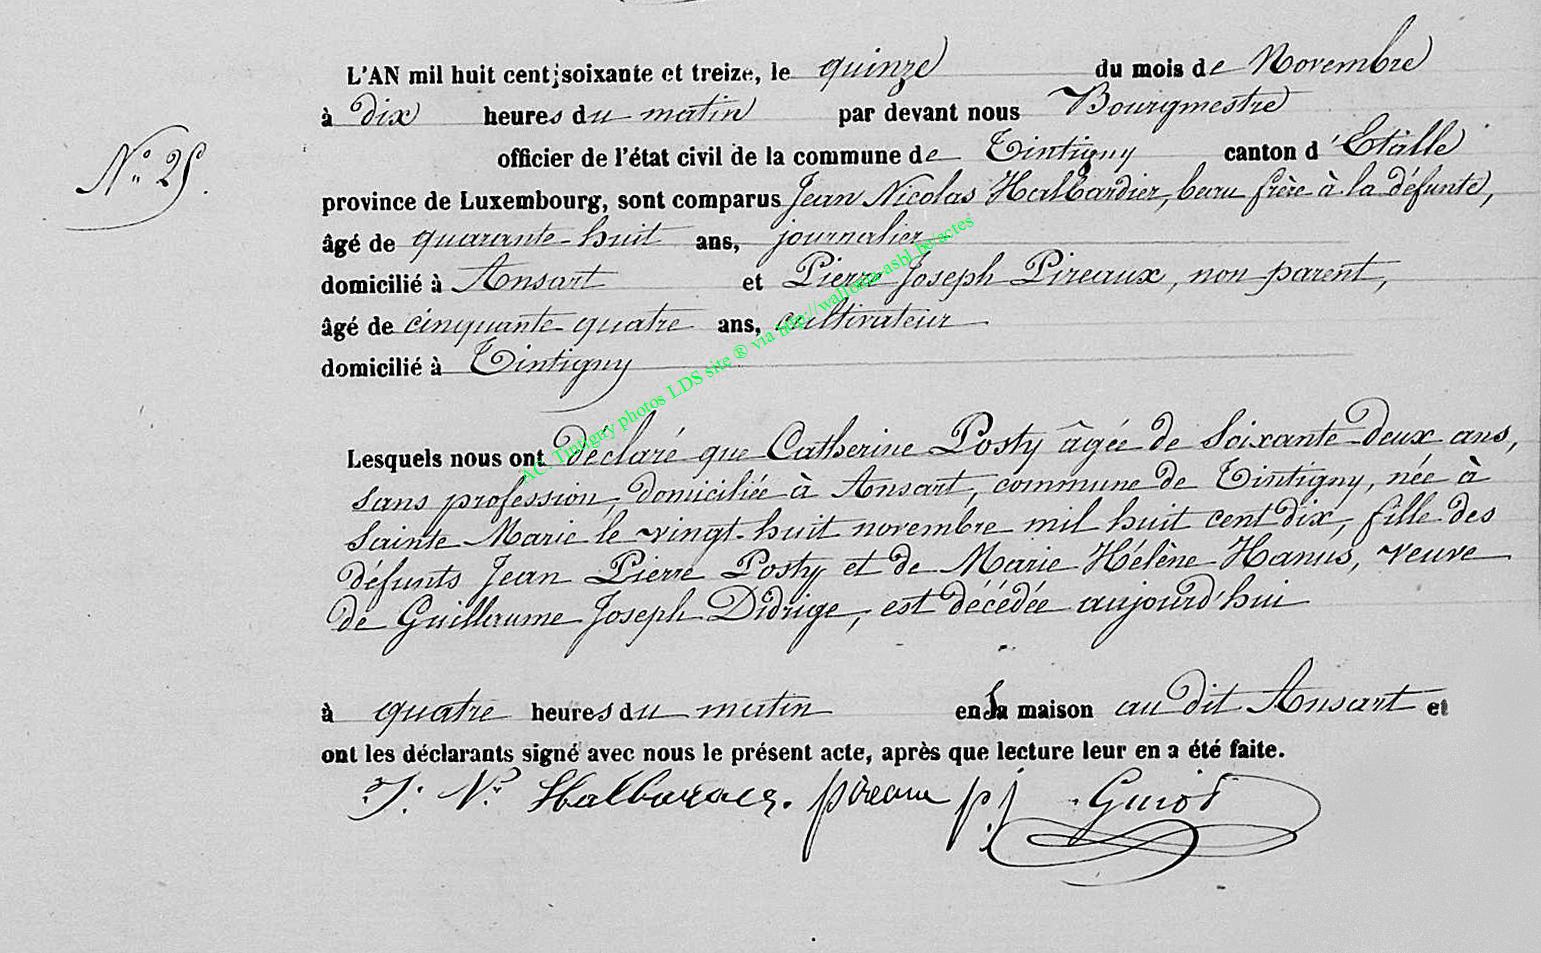 L'AN mil huit cent soixante et treize, le quinze du mois de Novembre
à dix heures du matin par devant nous Bourgmestre
officier de l'état civil de la commune de Tintigny canton d'Etalle
N° 25.
province de Luxembourg, sont comparus Jean Nicolas Halbardier, beau frère à la défunte,
âgé de quarante-huit ans, journalier
domicilié à Ansart et Pierre Joseph Pireaux, non parent,
âgé de cinquante-quatre ans, cultivateur
domicilié à Tintigny
AC. Tintigny photos LDS site ® via http://wallonia-asbl.be/actes
Lesquels nous ont déclaré que Catherine Posty âgée de Soixante-deux ans,
sans profession, domiciliée à Ansart, commune de Tintigny, née à
Sainte Marie le vingt-huit novembre mil huit cent dix, fille des
défunts Jean Pierre Posty et de Marie Hélène Hanus, veuve
de Guillaume Joseph Didrige, est décédée aujourd'hui
à quatre heures du matin en sa maison au dit Ansart et
ont les déclarants signé avec nous le présent acte, après que lecture leur en a été faite.
J. N. pireaux p.j Guiot